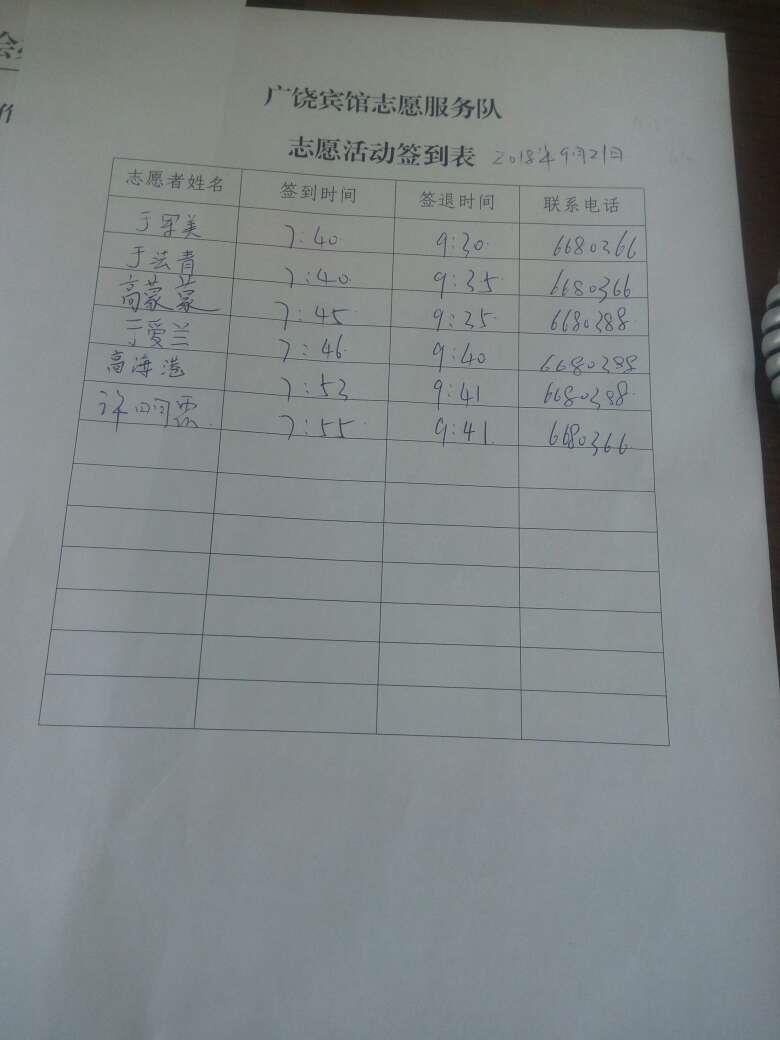 广饶宾馆志愿服务队
志愿活动签到表 2018年9月21日
志愿者姓名 签到时间 签退时间 联系电话
于军美 7:40 9:30 6680366
于法青 7:40 9:35 6680366
高蒙蒙 7:45 9:35 6680388
于爱兰 7:46 9:40 6680388
高海港 7:53 9:41 6680388
许 7:55 9:41 6680366